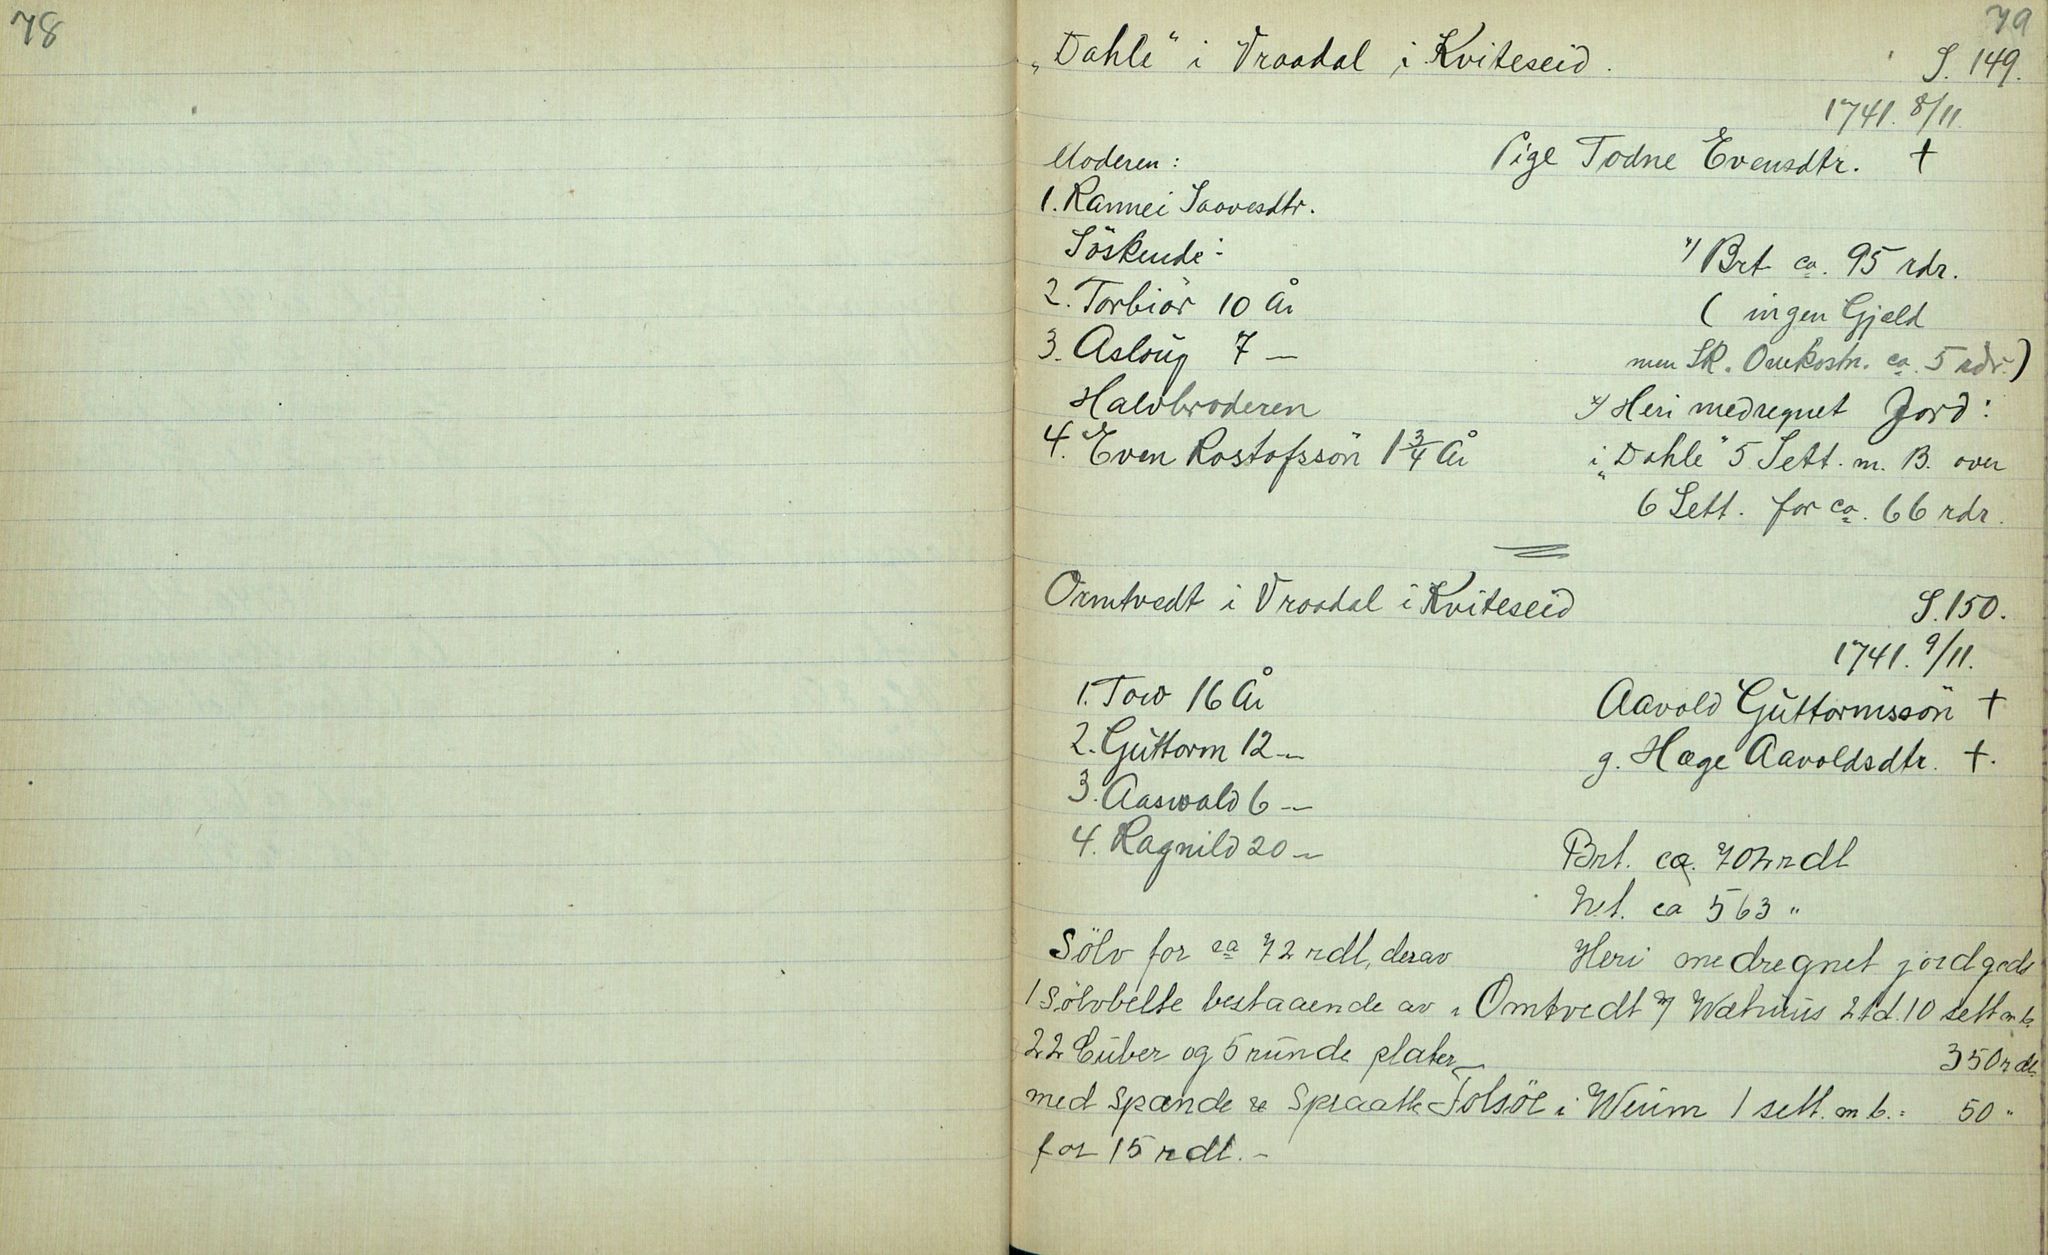 78
79
„Dahle" i Vraadal i Kviteseid.
S. 149.
1741. 8/11.
Moderen:
Pige Todne Evensdtr. †
1. Rannei Saavesdtr.
Söskende:
*/ Brt ca. 95 rdr.
2. Torbiör 10 År
( ingen Gjæld
3. Asloug 7 —
men Sk. Omkostn. ca. 5 rdr.)
Halvbroderen
*/ Heri medregnet Jord:
4. Even Rostofssön 1 3/4 År
i „Dahle" 5 Sett. m. B. over
6 Sett. for ca. 66 rdr.
Ormtvedt i Vraadal i Kviteseid
S. 150.
1741. 9/11.
1. Tow 16 År
Aavold Guttormssön †
2. Guttorm 12 —
g. Hæge Aavoldsdtr. †.
3. Aaswald 6 —
4. Ragnild 20 —
Brt. ca. 702 rdl
Net. ca 563 "
Sölv for ca 72 rdl, derav
Heri medregnet jordgods
1 Sölvbelte bestaaende av
i Omtvedt 2 td. 10 sett m b.
22 Cuber og 5 runde plater
350 rdl.
med Spænde
Folsöe i Weum 1 sett. m b. = 50 "
for 15 rdl. –